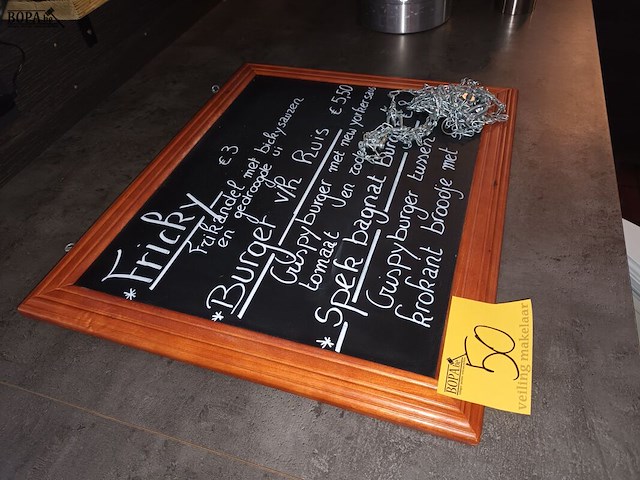 BOPA
* Fricky € 3
Frikandel met bickysauzen
en gedroogde ui
* Burger v/h Huis € 5,50
Crispyburger met new yorkersaus
tomaat en rode
* Spek bagnat Burger
Crispyburger tussen
krokant broodje met
BOPA
50
veiling makelaar